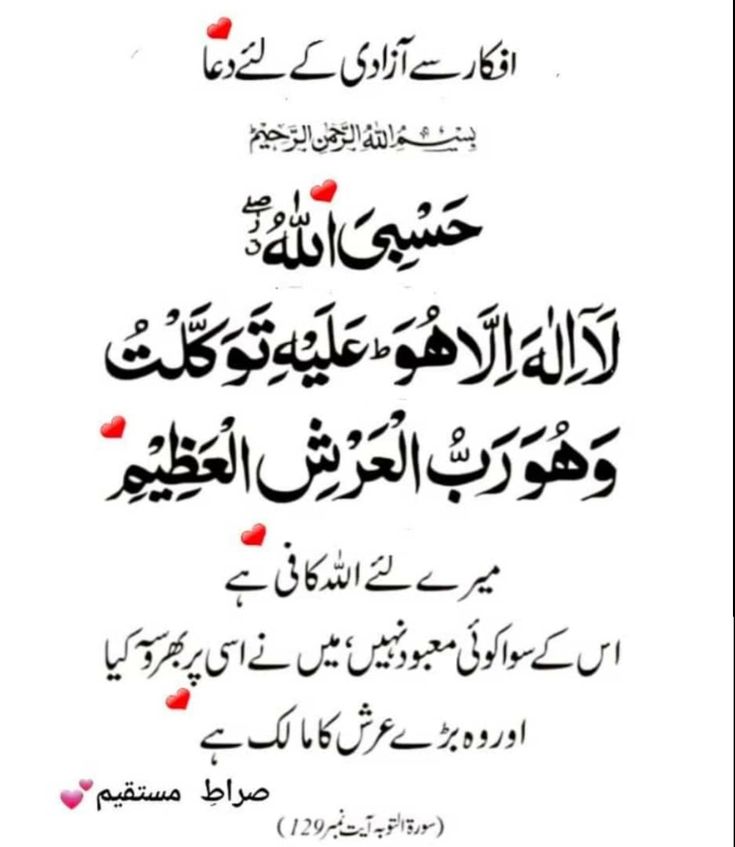 افکار سے آزادی کے لئے دعا
بِسْمِ اللهِ الرَّحْمٰنِ الرَّحِيْمِ
حَسْبِیَ اللّٰهُ ۖ ز
لَاۤ اِلٰهَ اِلَّا هُوَ ؕ عَلَیْهِ تَوَكَّلْتُ
وَهُوَ رَبُّ الْعَرْشِ الْعَظِیْمِ
میرے لئے اللہ کافی ہے
اس کے سوا کوئی معبود نہیں؛ میں نے اسی پر بھروسہ کیا
اور وہ بڑے عرش کا مالک ہے
صراطِ مستقیم
(سورۃ التوبہ آیت نمبر 129)